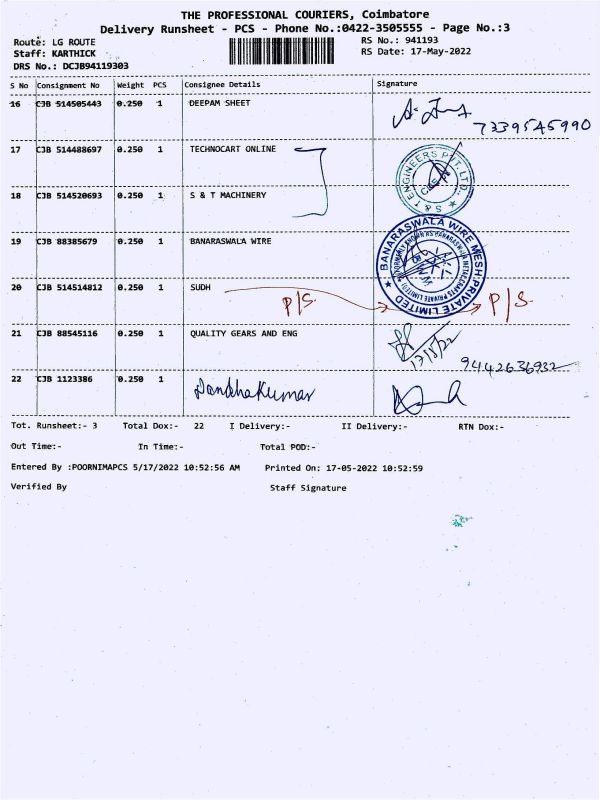 THE PROFESSIONAL COURIERS, Coimbatore
Delivery Runsheet - PCS - Phone No.:0422-3505555 - Page No.:3
Route: LG ROUTE
RS No.: 941193
Staff: KARTHICK
RS Date: 17-May-2022
DRS No.: DCJB94119303
S No Consignment No Weight PCS Consignee Details Signature
16 CJB 514505443 0.250 1 DEEPAM SHEET
7339545990
17 CJB 514488697 0.250 1 TECHNOCART ONLINE
S & T ENGINEERS PVT. LTD.
18 CJB 514520693 0.250 1 S & T MACHINERY
19 CJB 88385679 0.250 1 BANARASWALA WIRE
BANARASWALA WIRE MESH PRIVATE LIMITED
20 CJB 514514812 0.250 1 SUDH
P/S. P/S.
21 CJB 88545116 0.250 1 QUALITY GEARS AND ENG
17/5/22
9442636932
22 CJB 1123386 0.250 1 Nandhakumar
Tot. Runsheet:- 3 Total Dox:- 22 I Delivery:- II Delivery:- RTN Dox:-
Out Time:- In Time:- Total POD:-
Entered By :POORNIMAPCS 5/17/2022 10:52:56 AM Printed On: 17-05-2022 10:52:59
Verified By Staff Signature